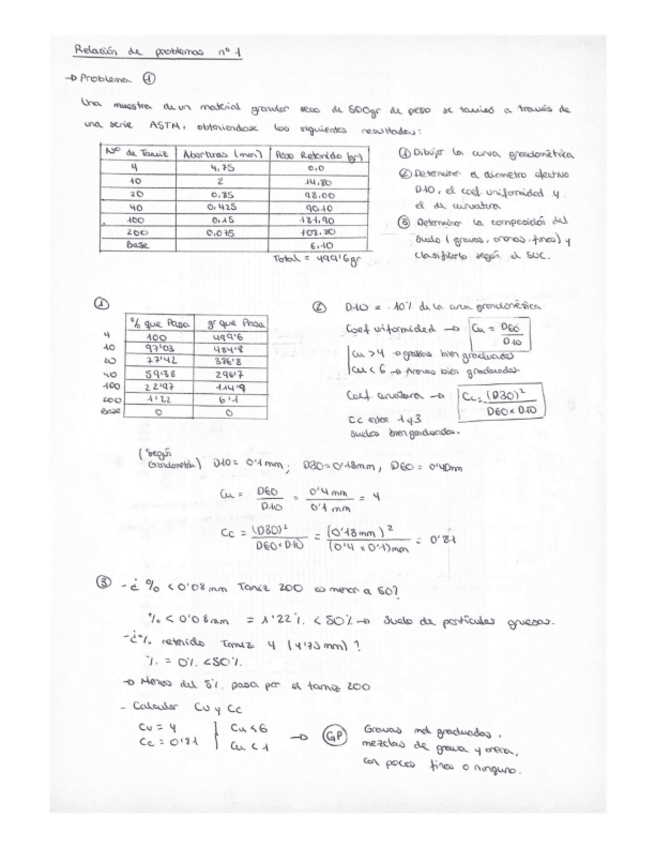 Relación de problemas nº 1
→ Problema ①
Una muestra de un material granular seco de 500gr de peso se tamizó a través de
una serie ASTM, obteniendose los siguientes resultados:
Nº de Tamiz Aberturas (mm) Peso Retenido (gr)
4 4,75 0,0
10 2 14,80
20 0,85 98,00
40 0,425 90,10
100 0,15 181,90
200 0,075 108,80
Base 6,10
Total = 499'6gr
① Dibujar la curva granulométrica
② Determinar el diámetro efectivo
D10, el coef. uniformidad y
el de curvatura
③ Determinar la composición del
suelo (gravas, arenas, finos) y
clasificarlo según el SUC.
①
% que Pasa gr que Pasa
4 100 499'6
10 97'03 484'8
20 77'42 386'8
40 59'38 296'7
100 22'97 114'8
200 1'22 6'1
Base 0 0
② D10 = 10% de la curva granulométrica
Coef uniformidad → Cu = D60 / D10
Cu > 4 → gravas bien graduadas
Cu < 6 → Arenas bien graduadas.
Coef curvatura → Cc = (D30)² / D60 × D10
Cc entre 1 y 3
suelos bien graduados.
(Según Granulometría) D10 = 0'1 mm; D30 = 0'18mm, D60 = 0'40mm
Cu = D60 / D10 = 0'4 mm / 0'1 mm = 4
Cc = (D30)² / D60 × D10 = (0'18mm)² / (0'4 × 0'1)mm = 0'81
③ - ¿% < 0'08mm Tamiz 200 es menor a 50?
% < 0'08mm = 1'22% < 50% → Suelo de partículas gruesas.
- ¿% retenido Tamiz 4 (4'75 mm)?
% = 0% < 50%.
→ Menos del 5% pasa por el tamiz 200
- Calcular Cu y Cc
Cu = 4 Cu < 6
Cc = 0'81 Cu < 1
→ GP Gravas mal graduadas,
mezclas de grava y arena,
con pocos finos o ninguno.